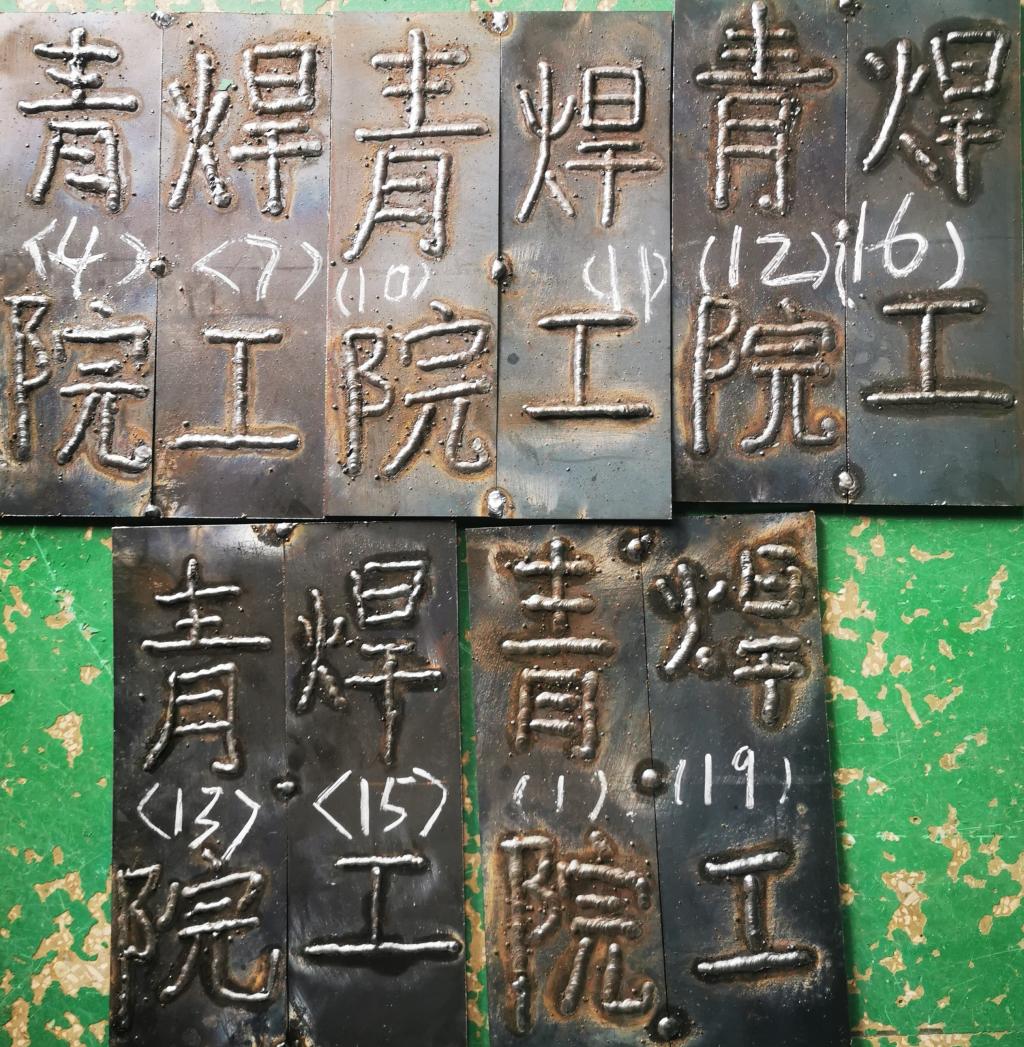 青焊青焊青焊
(4)(7)(10)(11)(12)(16)
院工院工院工
青焊青焊
(13)(15)(1)(19)
院工院工